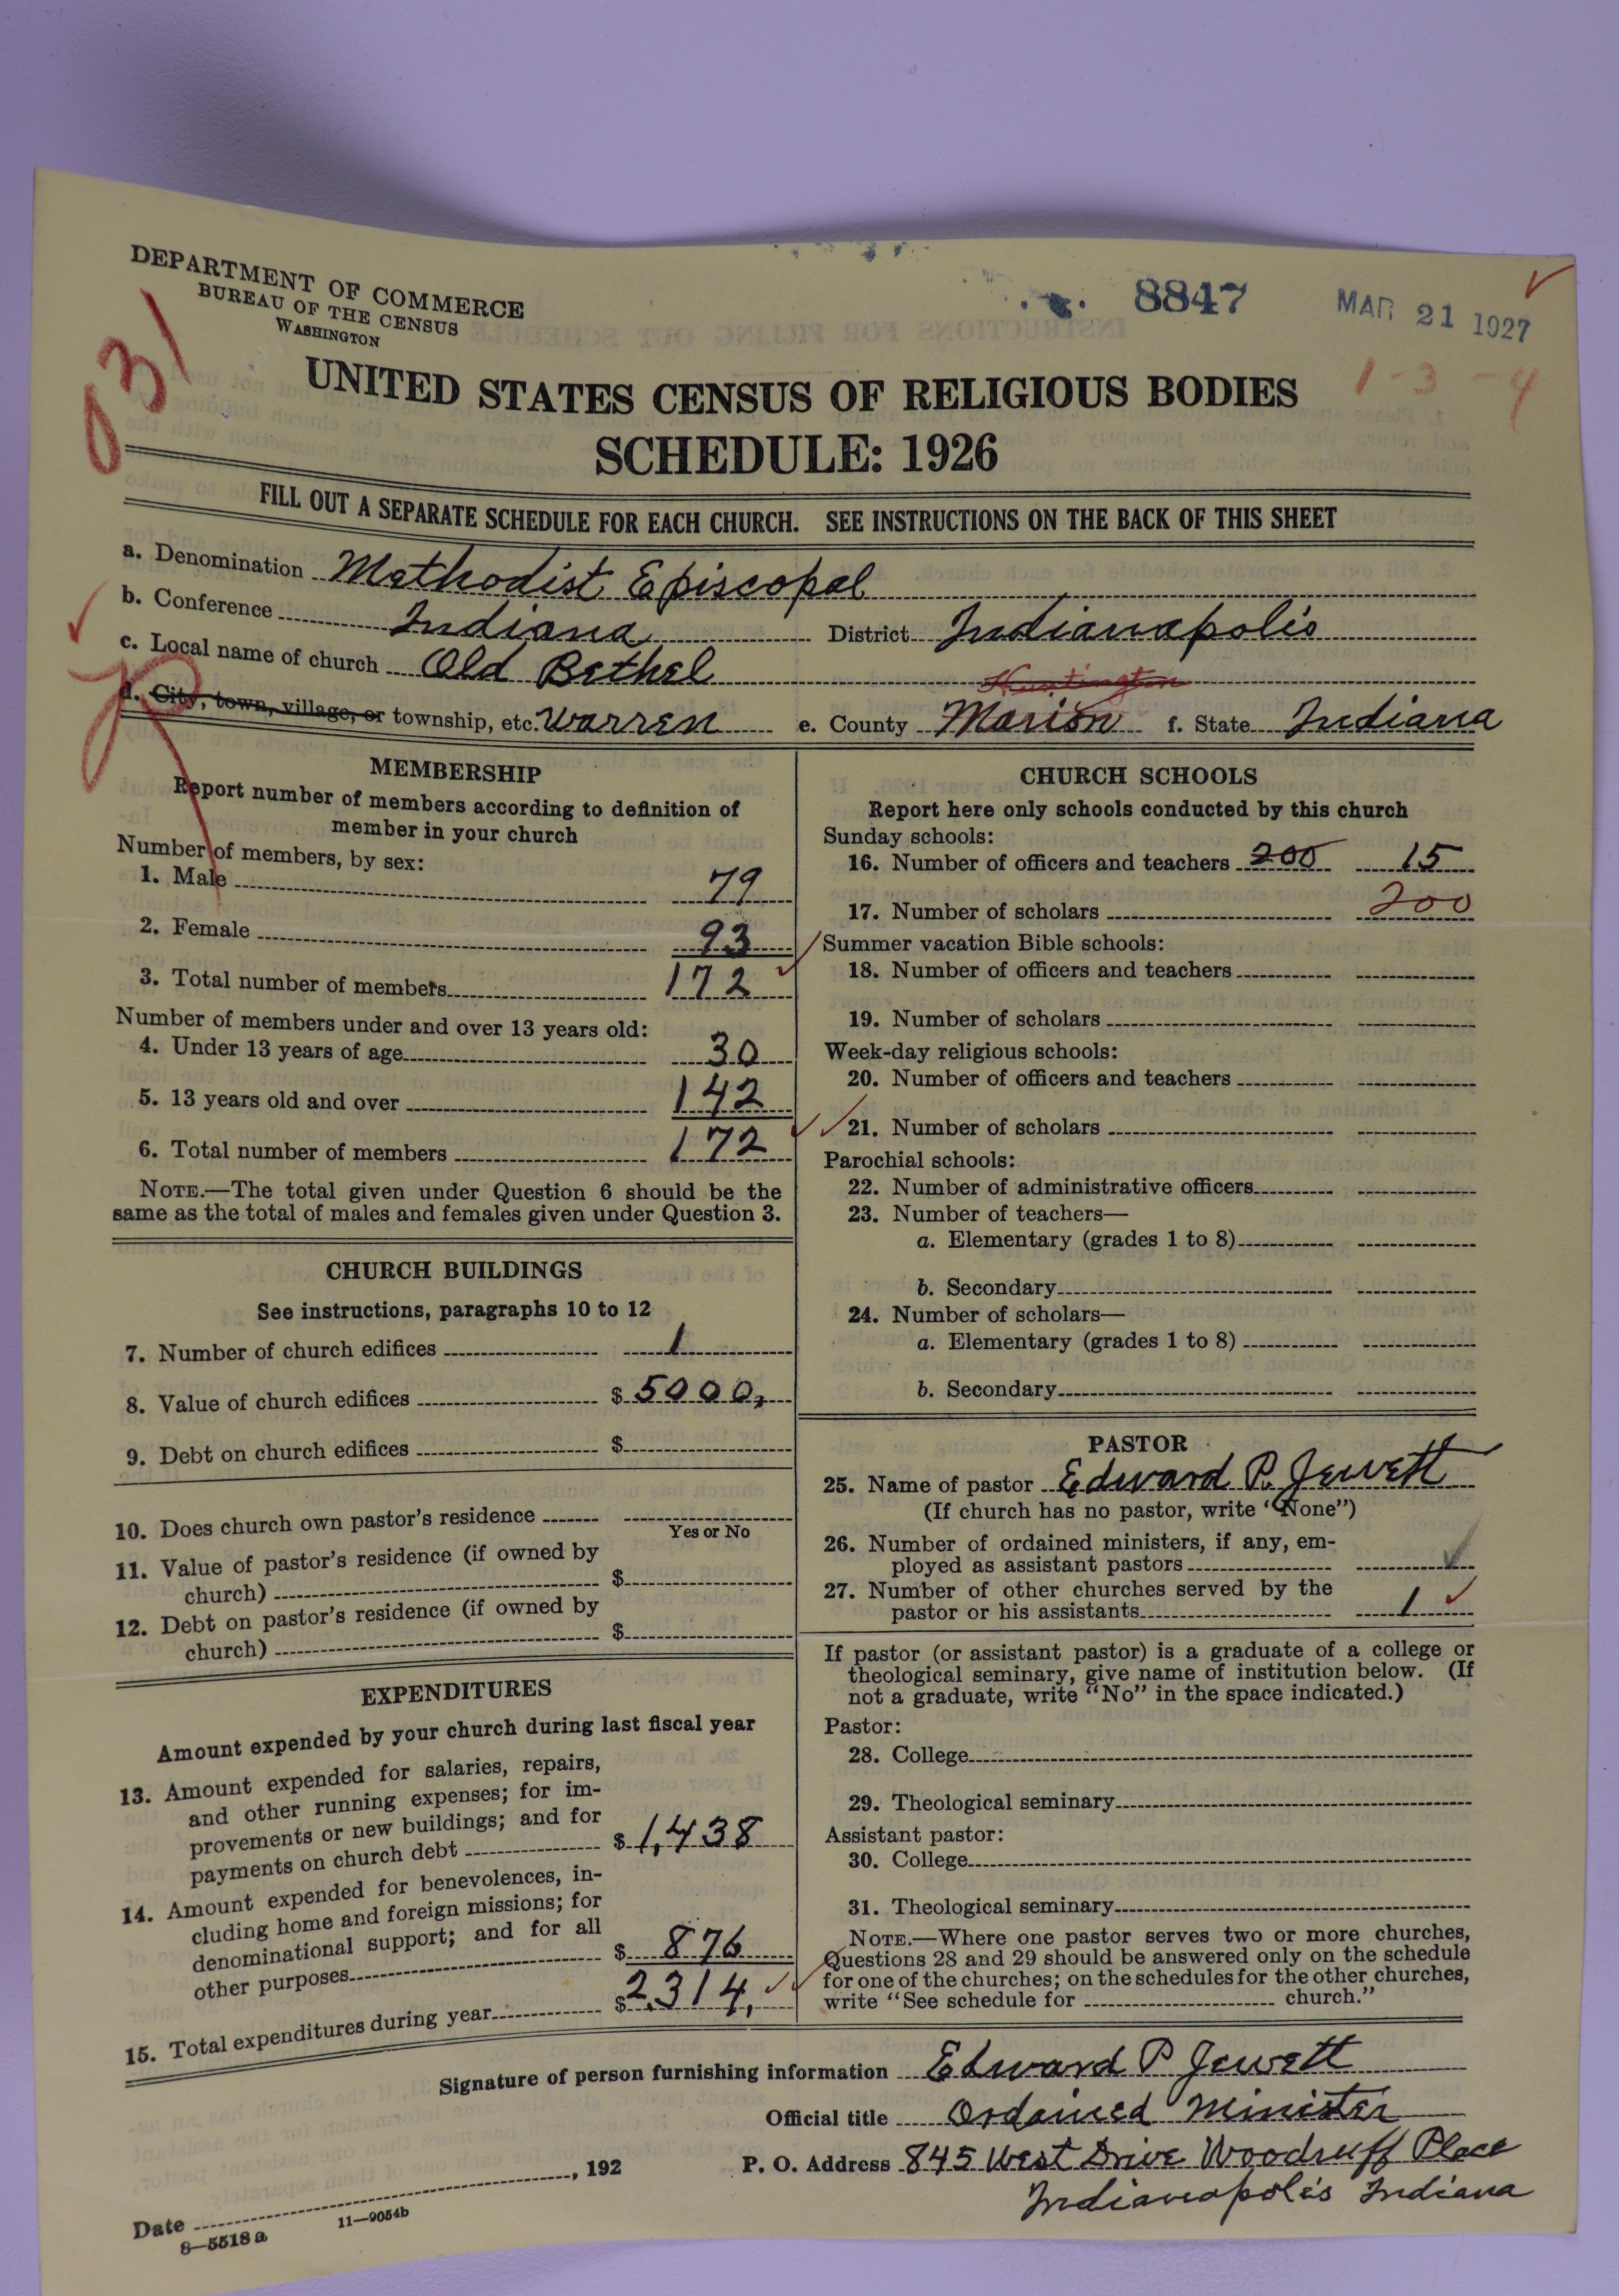 DEPARTMENT OF COMMERCE
BUREAU OF THE CENSUS
WASHINGTON
8847
MAR 21 1927
1-3-4
UNITED STATES CENSUS OF RELIGIOUS BODIES
SCHEDULE: 1926
FILL OUT A SEPARATE SCHEDULE FOR EACH CHURCH. SEE INSTRUCTIONS ON THE BACK OF THIS SHEET
a. Denomination Methodist Episcopal
b. Conference Indiana District Indianapolis
c. Local name of church Old Bethel
Huntington
d. City, town, village, or township, etc. Warren e. County Marion f. State Indiana
MEMBERSHIP
Report number of members according to definition of
member in your church
Number of members, by sex:
1. Male 79
2. Female 93
3. Total number of members 172
Number of members under and over 13 years old:
4. Under 13 years of age 30
5. 13 years old and over 142
6. Total number of members 172
NOTE.—The total given under Question 6 should be the
same as the total of males and females given under Question 3.
CHURCH BUILDINGS
See instructions, paragraphs 10 to 12
7. Number of church edifices 1
8. Value of church edifices $ 5000,
9. Debt on church edifices $
10. Does church own pastor's residence
Yes or No
11. Value of pastor's residence (if owned by
church) $
12. Debt on pastor's residence (if owned by
church) $
EXPENDITURES
Amount expended by your church during last fiscal year
13. Amount expended for salaries, repairs,
and other running expenses; for im-
provements or new buildings; and for
payments on church debt $ 1,438
14. Amount expended for benevolences, in-
cluding home and foreign missions; for
denominational support; and for all
other purposes $ 876
15. Total expenditures during year $ 2,314,
CHURCH SCHOOLS
Report here only schools conducted by this church
Sunday schools:
16. Number of officers and teachers 200 15
17. Number of scholars 200
Summer vacation Bible schools:
18. Number of officers and teachers
19. Number of scholars
Week-day religious schools:
20. Number of officers and teachers
21. Number of scholars
Parochial schools:
22. Number of administrative officers
23. Number of teachers—
a. Elementary (grades 1 to 8)
b. Secondary
24. Number of scholars—
a. Elementary (grades 1 to 8)
b. Secondary
PASTOR
25. Name of pastor Edward P. Jewett
(If church has no pastor, write "None")
26. Number of ordained ministers, if any, em-
ployed as assistant pastors
27. Number of other churches served by the
pastor or his assistants 1
If pastor (or assistant pastor) is a graduate of a college or
theological seminary, give name of institution below. (If
not a graduate, write "No" in the space indicated.)
Pastor:
28. College
29. Theological seminary
Assistant pastor:
30. College
31. Theological seminary
NOTE.—Where one pastor serves two or more churches,
Questions 28 and 29 should be answered only on the schedule
for one of the churches; on the schedules for the other churches,
write "See schedule for church."
Signature of person furnishing information Edward P Jewett
Official title Ordained Minister
P. O. Address 845 West Drive Woodruff Place
Indianapolis Indiana
Date , 192
8—5518 a 11—9054b